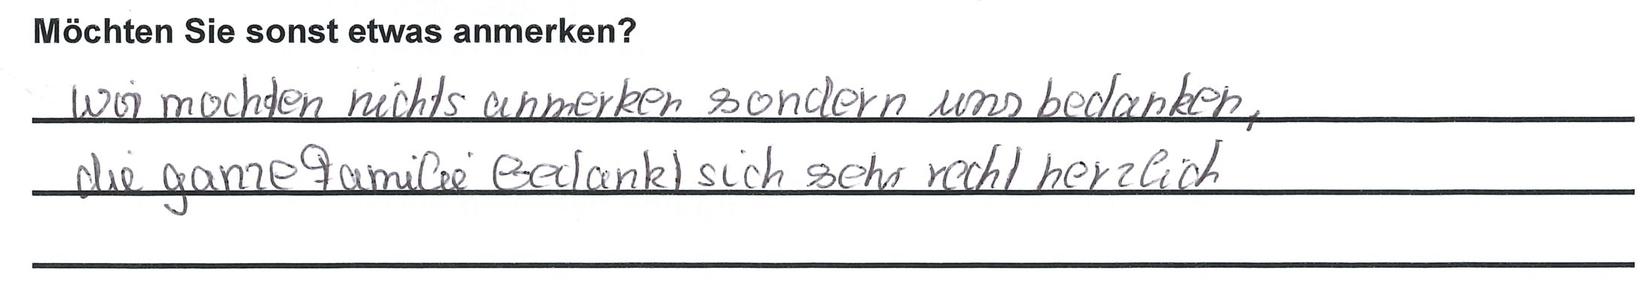 Möchten Sie sonst etwas anmerken?
wir mochten nichts anmerken sondern uns bedanken,
die ganze Familie Bedankt sich sehr recht herzlich